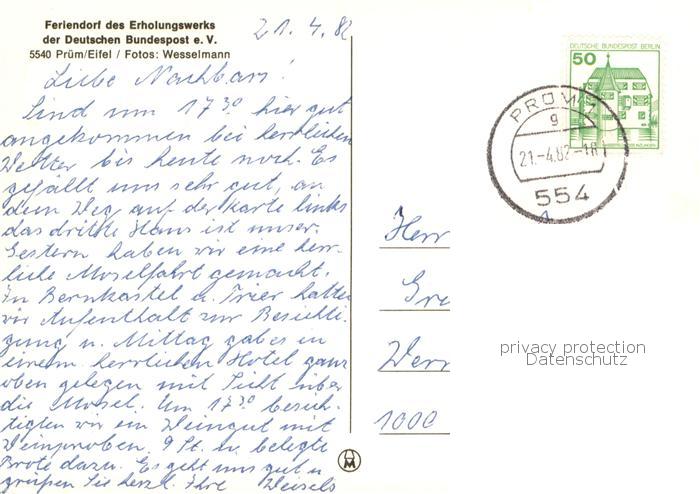 Feriendorf des Erholungswerks
der Deutschen Bundespost e. V.
5540 Prüm/Eifel / Fotos: Wesselmann
21.4.82
Liebe Nachbarn!
Sind um 17³⁰ hier gut
angekommen bei herrlichem
Wetter bis heute noch. Es
gefällt uns sehr gut, an
dem Weg auf der Karte links
das dritte Haus ist unser.
Gestern haben wir eine herr-
liche Moselfahrt gemacht.
In Bernkastel u. Trier hatten
wir Aufenthalt zur Besichti-
gung u. Mittag gab es in
einem herrlichen Hotel ganz
oben gelegen mit Sicht über
die Mosel. Um 17³⁰ besich-
tigten wir ein Weingut mit
Weinproben. 9 St. u. belegte
Brote dazu. Es geht uns gut u
grüßen Sie herzl. Ihre
DEUTSCHE BUNDESPOST BERLIN
50
PRÜM
g
21.-4.82-18
554
Herr
Gre
Wern
1000
privacy protection
Datenschutz